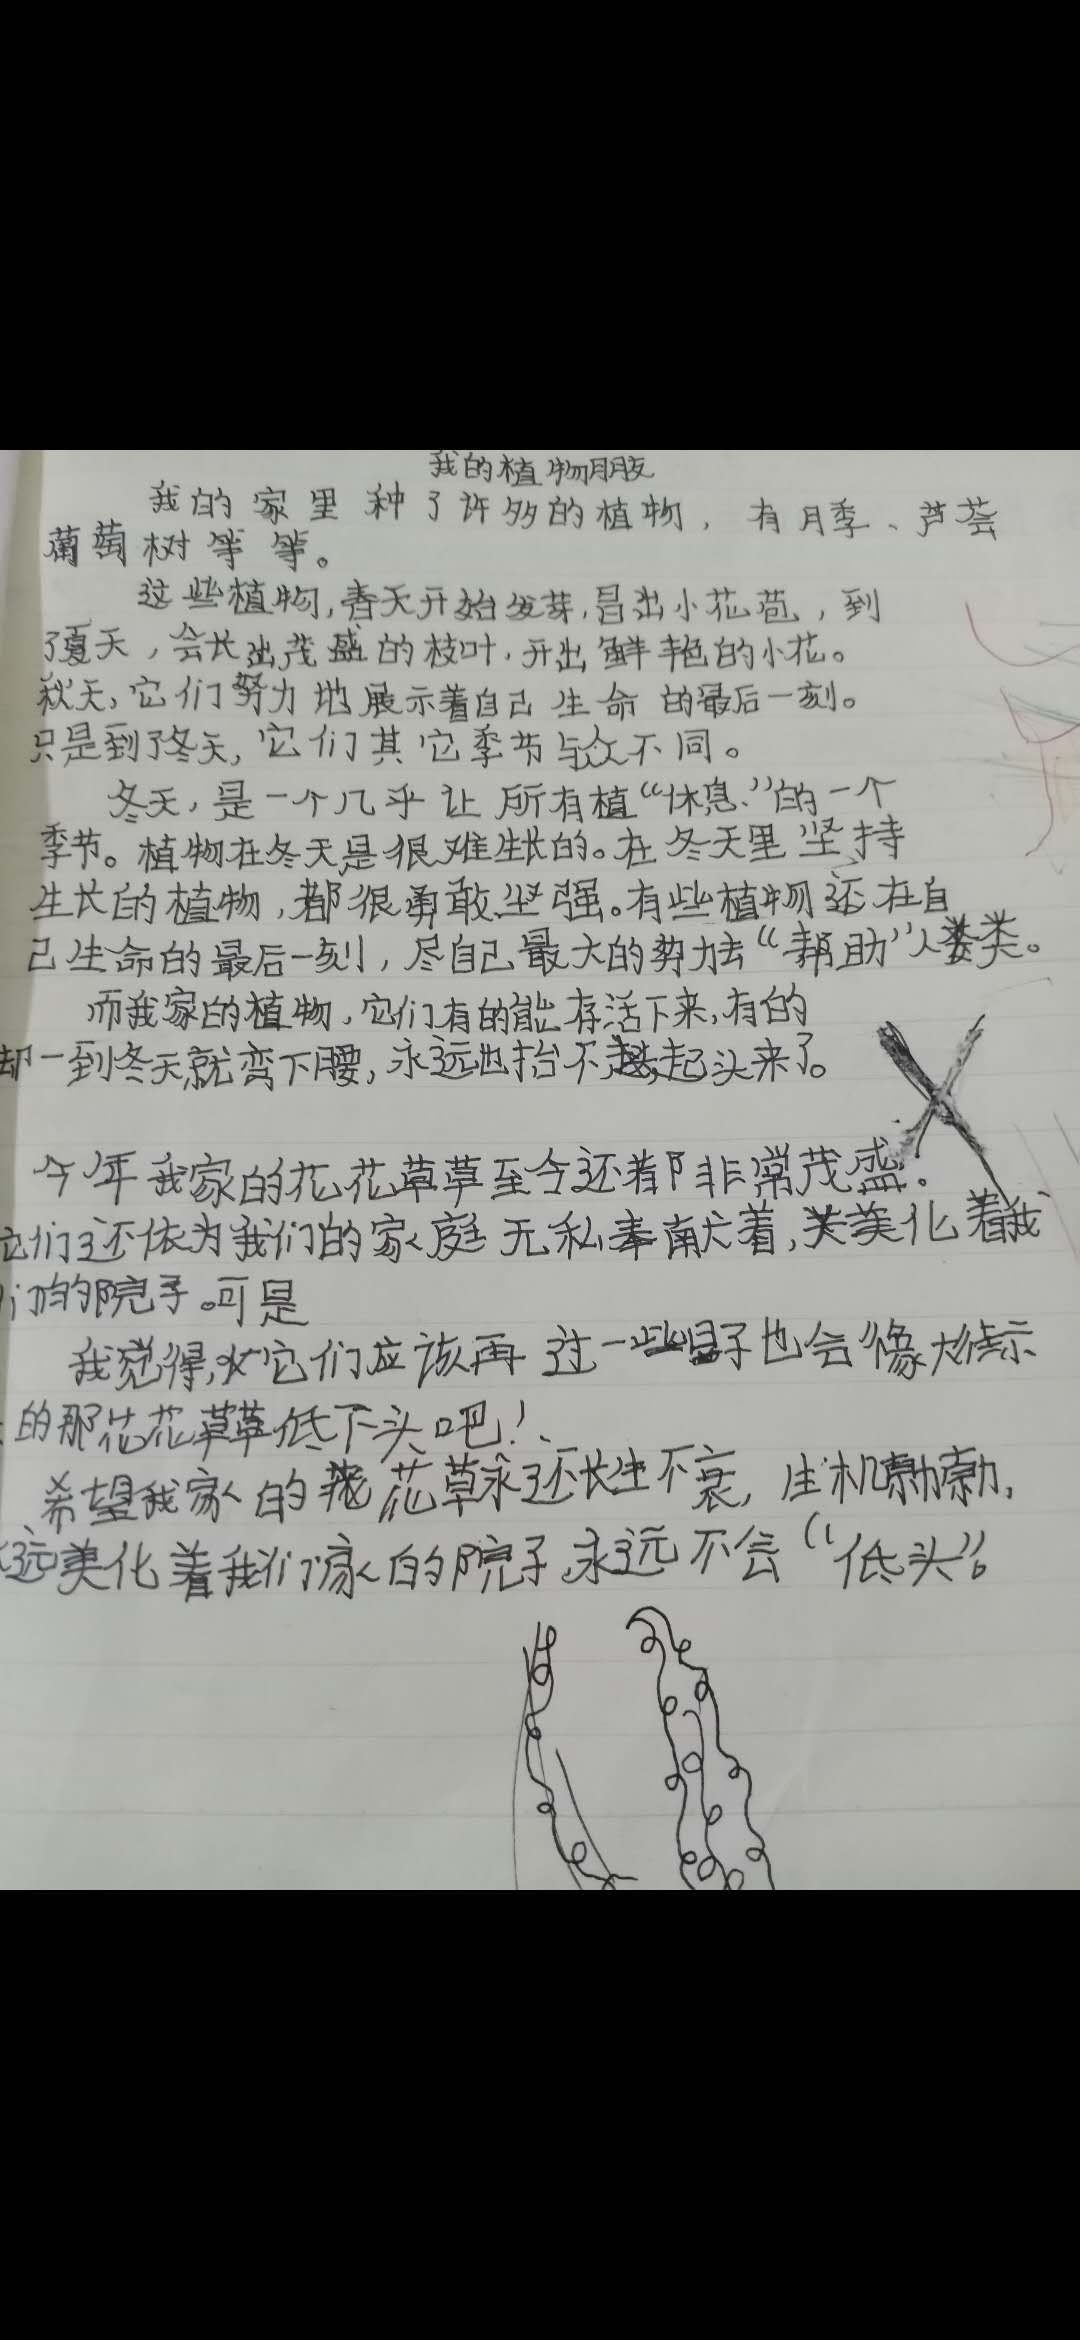 我的植物朋友
我的家里种了许多的植物，有月季、芦荟
葡萄树等等。
这些植物，春天开始发芽，冒出小花苞，到
了夏天，会长出茂盛的枝叶，开出鲜艳的小花。
秋天，它们努力地展示着自己生命的最后一刻。
只是到了冬天，它们其它季节与众不同。
冬天，是一个几乎让所有植“休息”的一个
季节。植物在冬天是很难生长的。在冬天里坚持
生长的植物，都很勇敢坚强。有些植物还在自
己生命的最后一刻，尽自己最大的努力去“帮助”人类。
而我家的植物，它们有的能存活下来，有的
却一到冬天就弯下腰，永远也抬不起头来了。
今年我家的花花草草至今还都非常茂盛．
它们还依为我们的家庭无私奉献着，美化着我
们的院子。可是
我觉得，它们应该再过一些日子也会像
的那花花草草低下头吧！
希望我家的花草永远长生不衰，生机勃勃，
远美化着我们家的院子，永远不会“低头”。